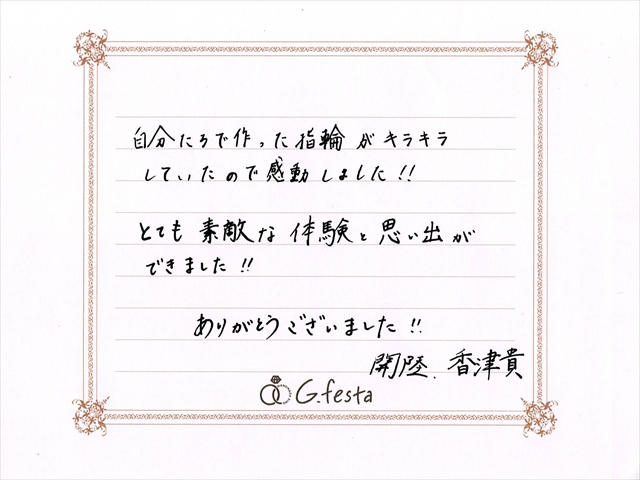 自分たちで作った指輪がキラキラ
していたので感動しました!!
とても素敵な体験と思い出が
できました!!
ありがとうございました!!
開陸. 香津貴
G.festa